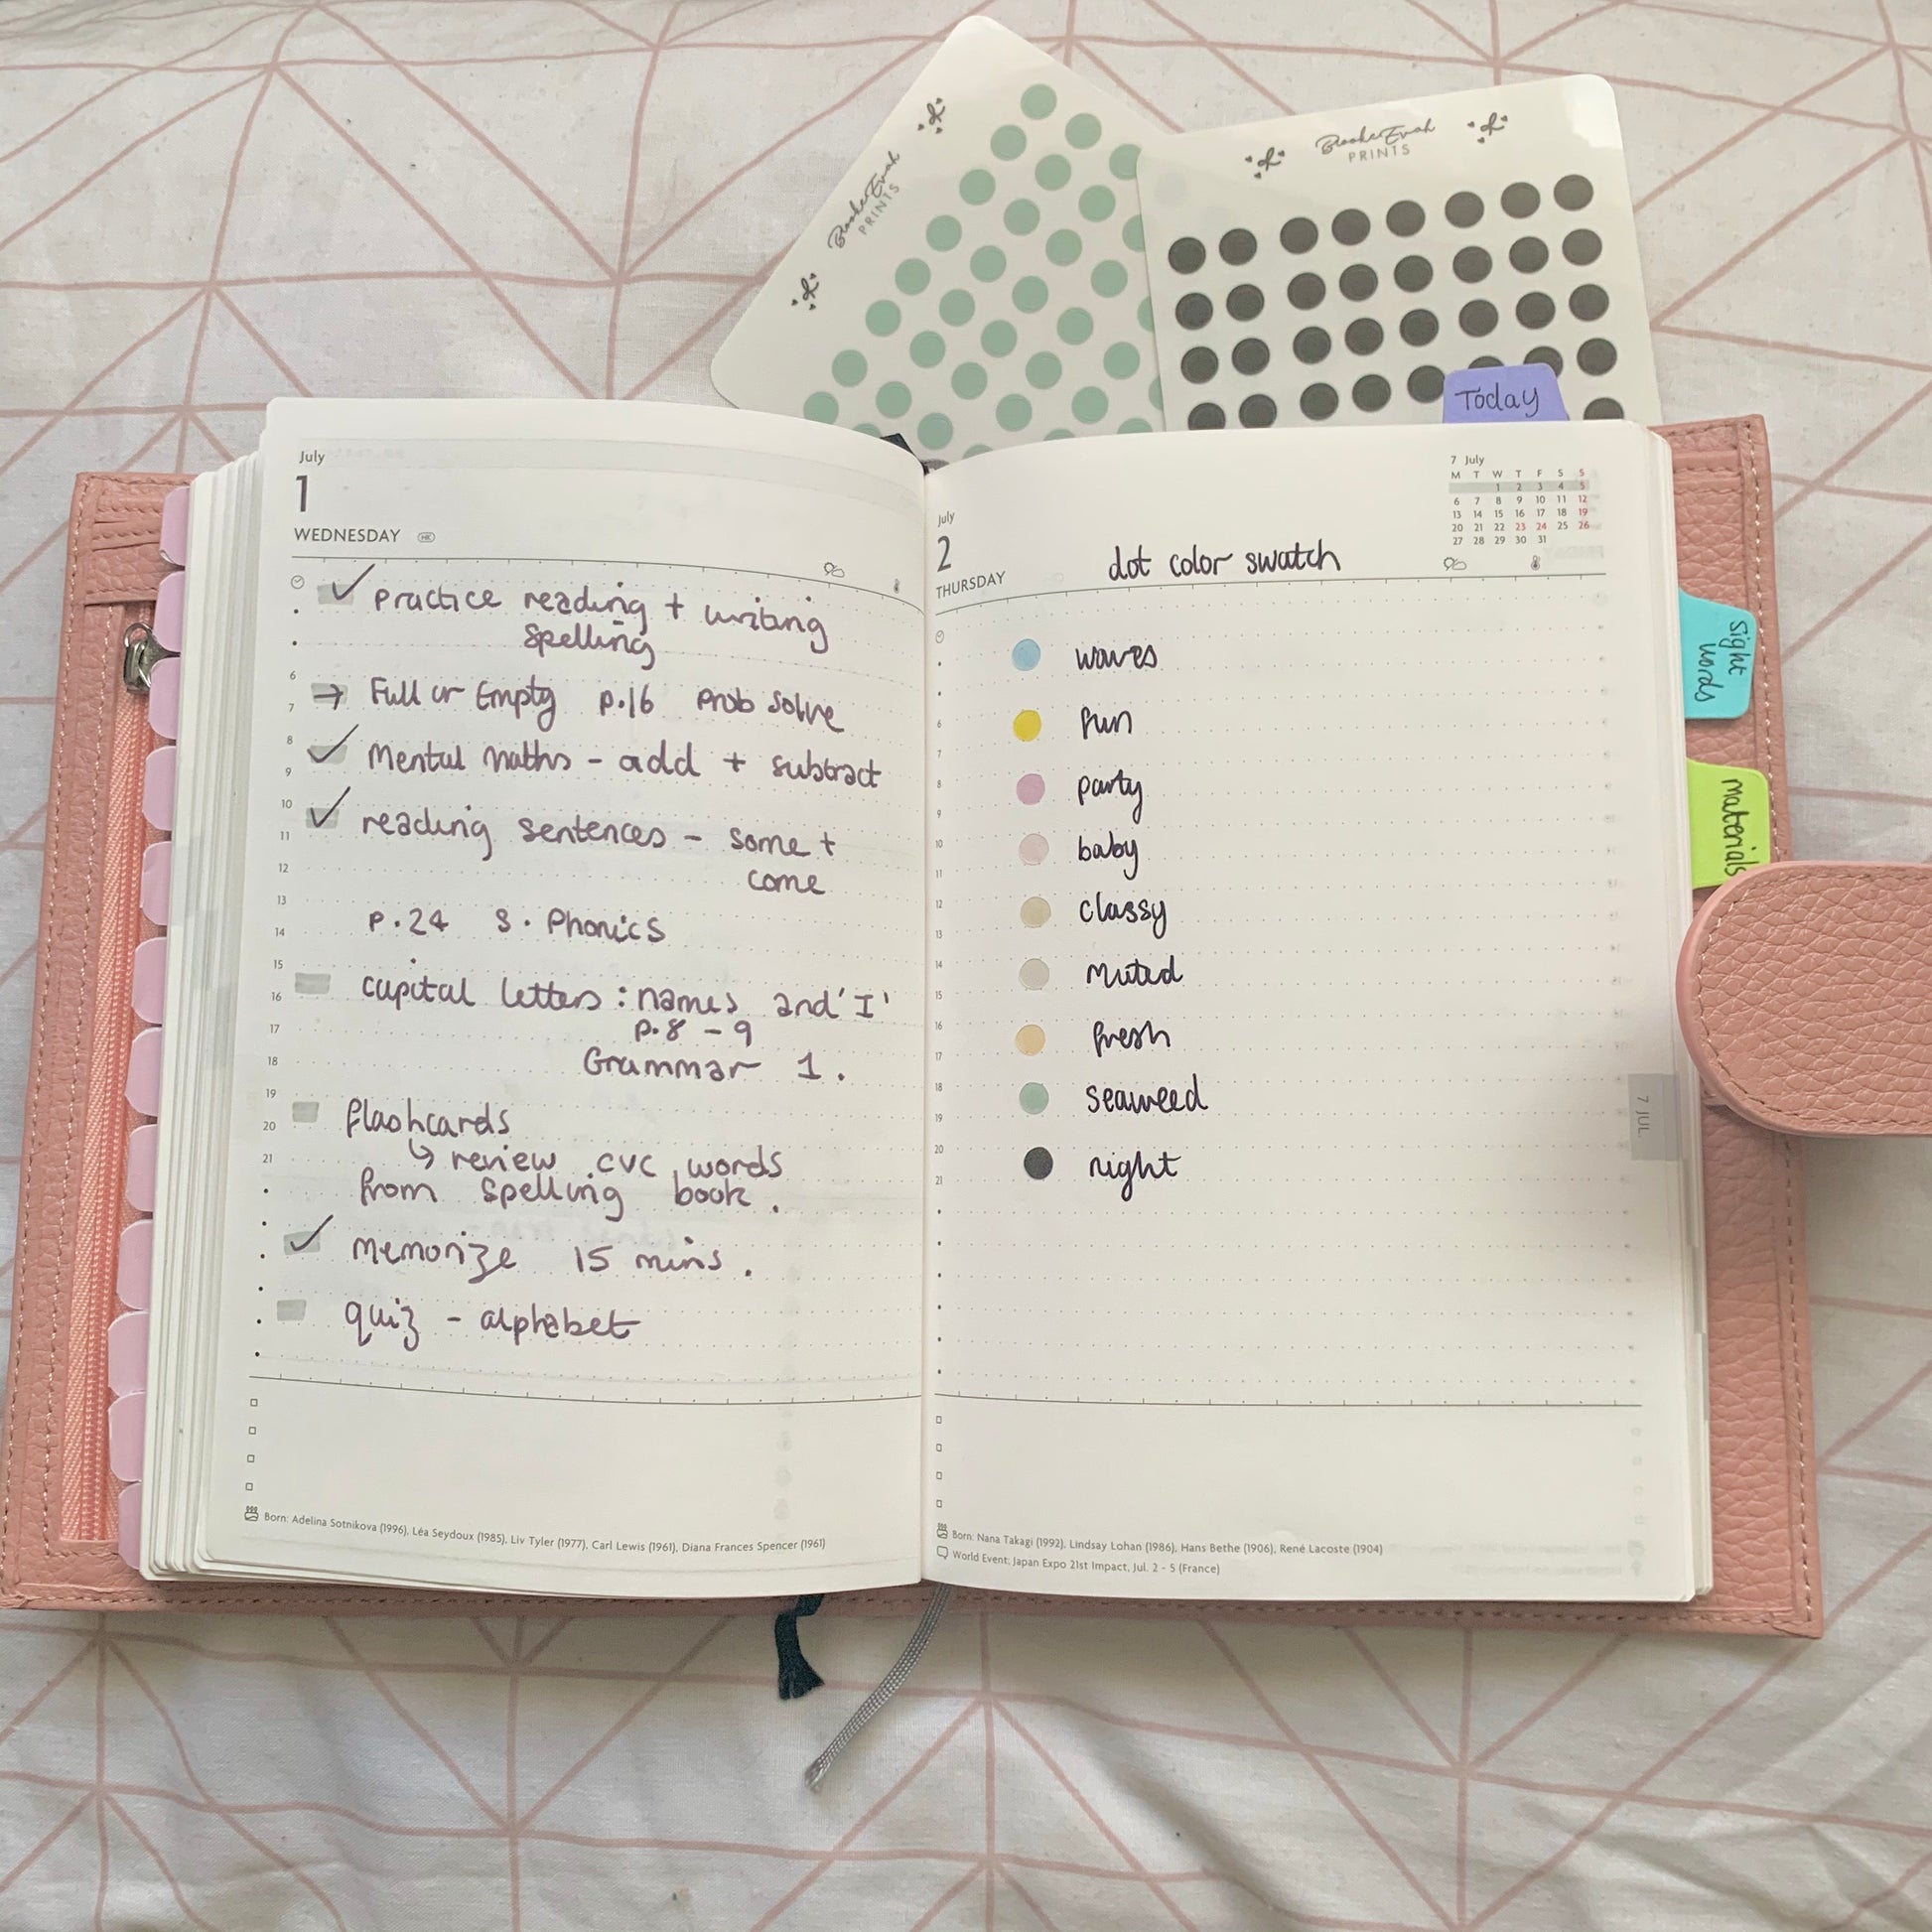 BrookeEvah
PRINTS
BrookeEvah
PRINTS
Today
July
1
WEDNESDAY HK
practice reading + writing
spelling
→ Full or Empty p.16 prob solve
Mental maths - add + subtract
reading sentences - some +
come
p.24 S. Phonics
capital letters: names and 'I'
p.8 - 9
Grammar 1.
flashcards
↳ review cvc words
from spelling book.
memorize 15 mins.
quiz - alphabet
6
7
8
9
10
11
12
13
14
15
16
17
18
19
20
21
Born: Adelina Sotnikova (1996), Léa Seydoux (1985), Liv Tyler (1977), Carl Lewis (1961), Diana Frances Spencer (1961)
July
2
THURSDAY
dot color swatch
7 July
M T W T F S S
1 2 3 4 5
6 7 8 9 10 11 12
13 14 15 16 17 18 19
20 21 22 23 24 25 26
27 28 29 30 31
waves
fun
party
baby
classy
muted
fresh
seaweed
night
6
7
8
9
10
11
12
13
14
15
16
17
18
19
20
21
Born: Nana Takagi (1992), Lindsay Lohan (1986), Hans Bethe (1906), René Lacoste (1904)
World Event: Japan Expo 21st Impact, Jul. 2 - 5 (France)
7 JUL
Sight
words
materials